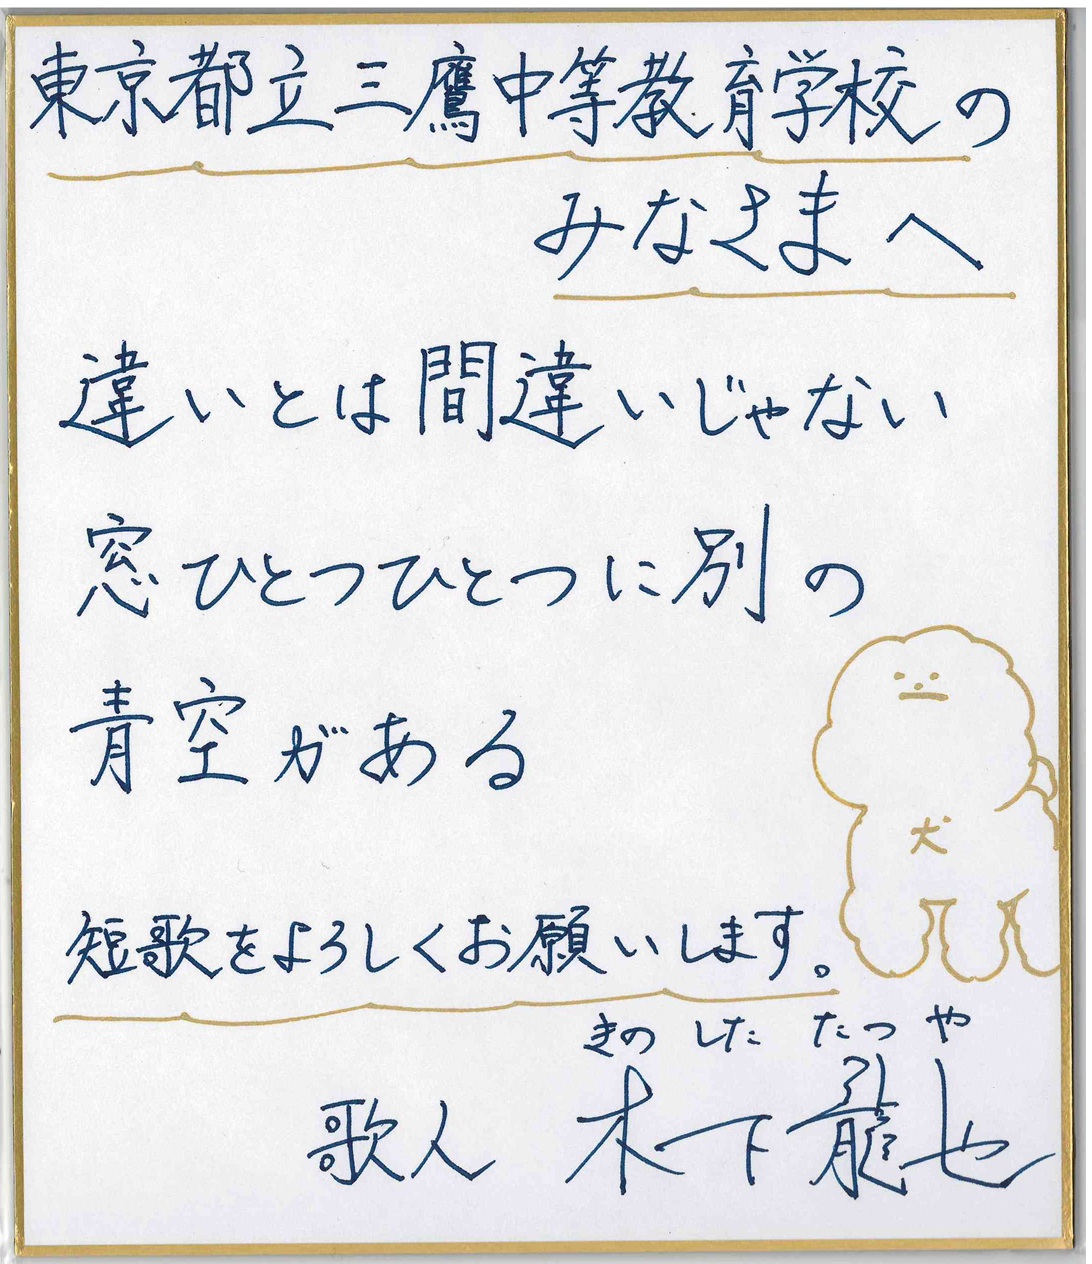 東京都立三鷹中等教育学校の
みなさまへ
違いとは間違いじゃない
窓ひとつひとつに別の
青空がある
犬
短歌をよろしくお願いします。
きのした たつや
歌人 木下龍也